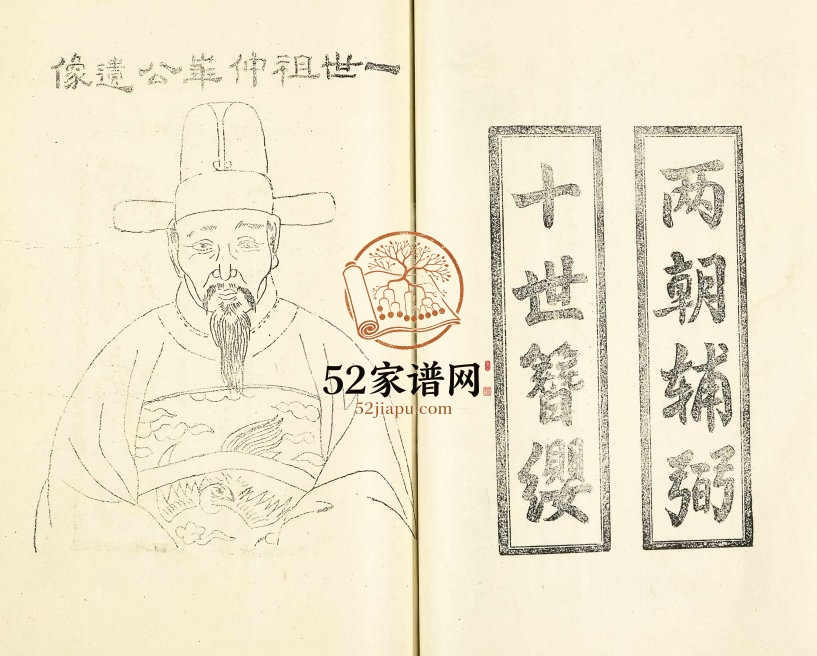 两朝辅弼
十世簪缨
一世祖仲華公遺像
52家谱网
52jiapu.com